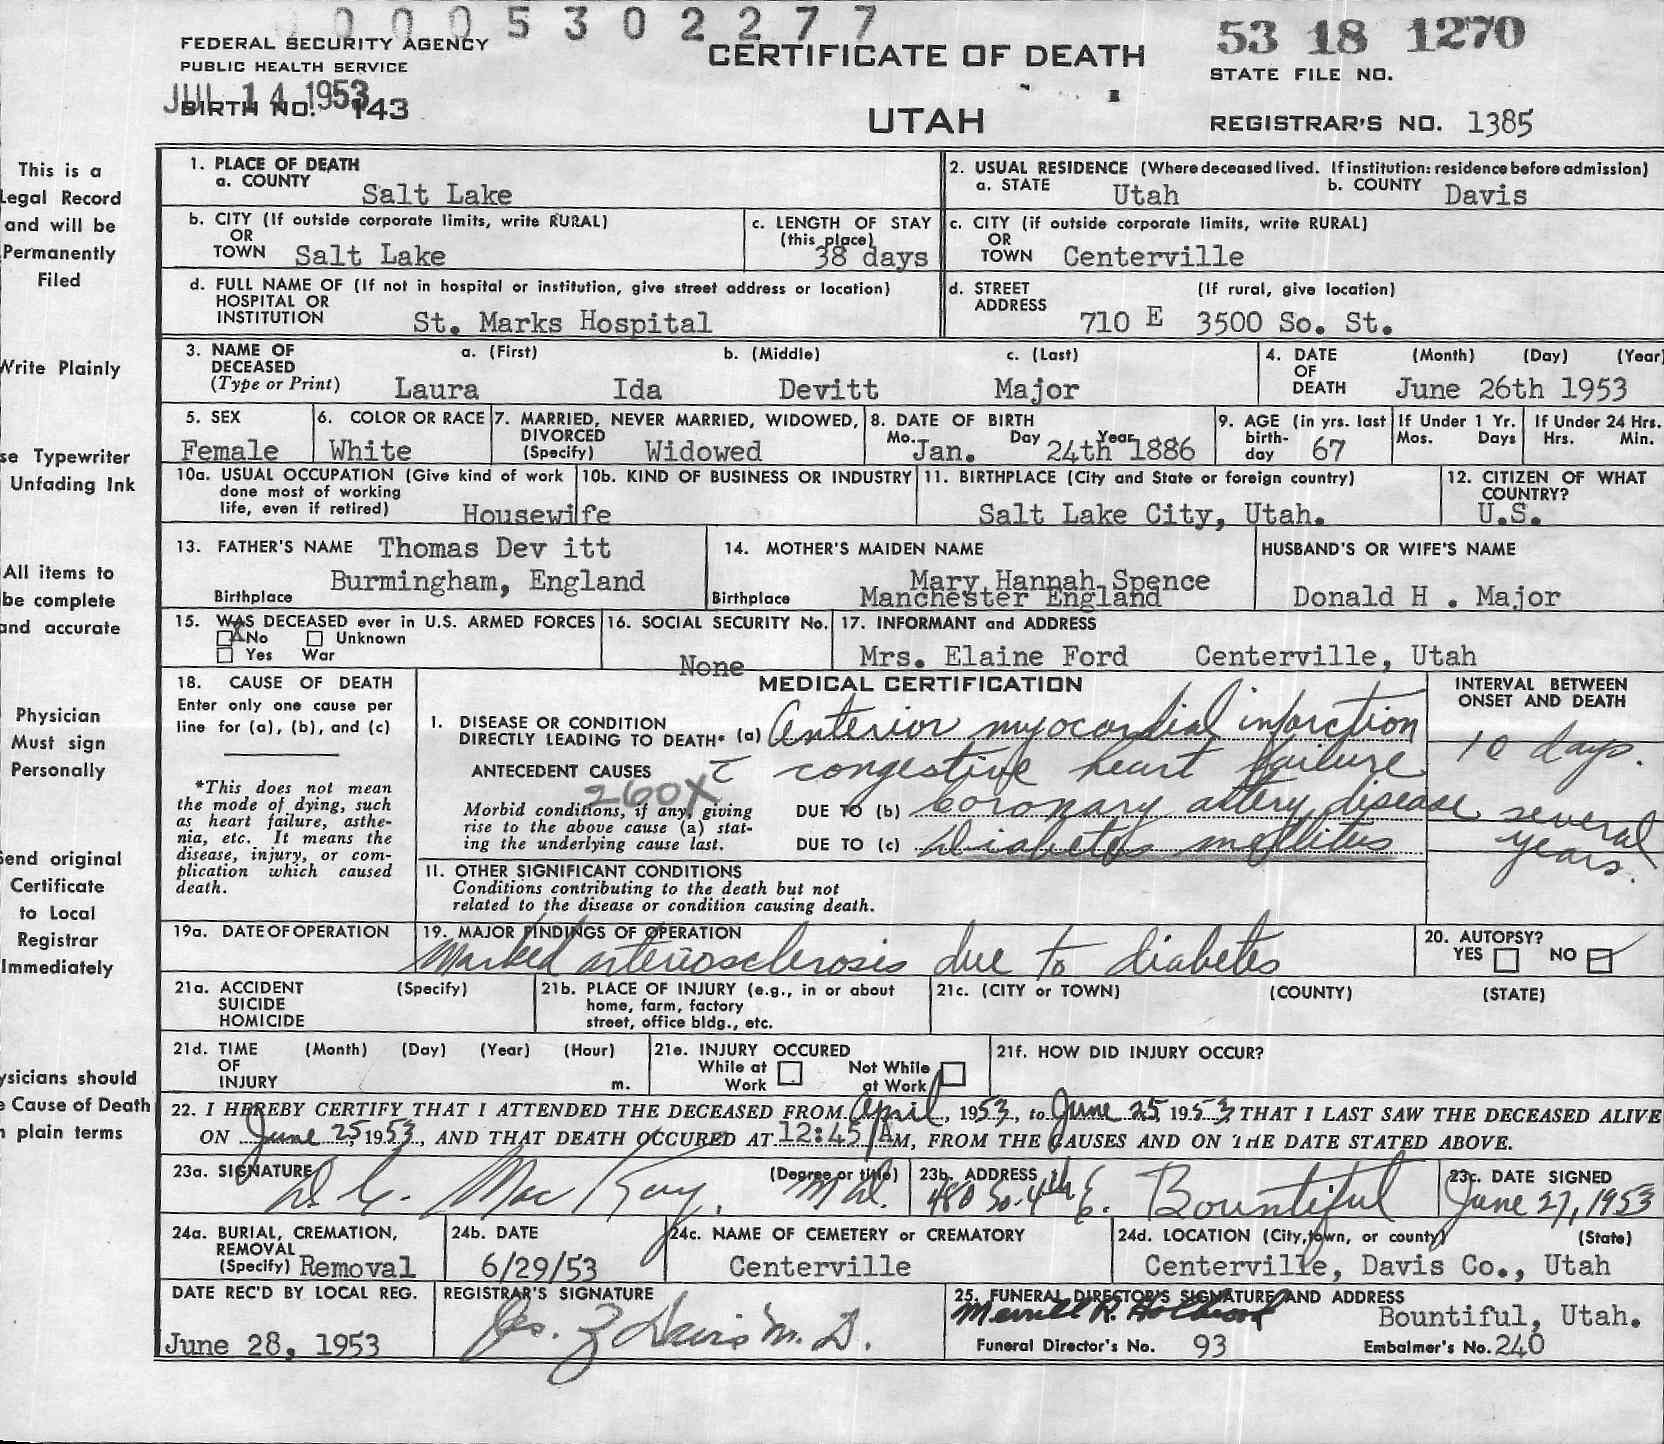 0005302277
53 18 1270
FEDERAL SECURITY AGENCY
PUBLIC HEALTH SERVICE
CERTIFICATE OF DEATH
STATE FILE NO.
JUL 14 1953
BIRTH NO. 143
UTAH
REGISTRAR'S NO. 1385
This is a
Legal Record
and will be
Permanently
Filed
Write Plainly
se Typewriter
Unfading Ink
All items to
be complete
and accurate
Physician
Must sign
Personally
Send original
Certificate
to Local
Registrar
Immediately
ysicians should
e Cause of Death
n plain terms
1. PLACE OF DEATH
a. COUNTY Salt Lake
2. USUAL RESIDENCE (Where deceased lived. If institution: residence before admission)
a. STATE Utah b. COUNTY Davis
b. CITY (If outside corporate limits, write RURAL)
OR
TOWN Salt Lake
c. LENGTH OF STAY
(this place)
38 days
c. CITY (if outside corporate limits, write RURAL)
OR
TOWN Centerville
d. FULL NAME OF (If not in hospital or institution, give street address or location)
HOSPITAL OR
INSTITUTION St. Marks Hospital
d. STREET (If rural, give location)
ADDRESS 710 E 3500 So. St.
3. NAME OF a. (First) b. (Middle) c. (Last)
DECEASED
(Type or Print) Laura Ida Devitt Major
4. DATE (Month) (Day) (Year)
OF
DEATH June 26th 1953
5. SEX
Female
6. COLOR OR RACE
White
7. MARRIED, NEVER MARRIED, WIDOWED,
DIVORCED
(Specify) Widowed
8. DATE OF BIRTH
Mo. Day Year
Jan. 24th 1886
9. AGE (in yrs. last
birth-
day 67
If Under 1 Yr.
Mos. Days
If Under 24 Hrs.
Hrs. Min.
10a. USUAL OCCUPATION (Give kind of work
done most of working
life, even if retired) Housewife
10b. KIND OF BUSINESS OR INDUSTRY
11. BIRTHPLACE (City and State or foreign country)
Salt Lake City, Utah.
12. CITIZEN OF WHAT
COUNTRY?
U.S.
13. FATHER'S NAME Thomas Dev itt
Birthplace Burmingham, England
14. MOTHER'S MAIDEN NAME
Mary Hannah Spence
Birthplace Manchester England
HUSBAND'S OR WIFE'S NAME
Donald H . Major
15. WAS DECEASED ever in U.S. ARMED FORCES
X No Unknown
Yes War
16. SOCIAL SECURITY No.
None
17. INFORMANT and ADDRESS
Mrs. Elaine Ford Centerville, Utah
18. CAUSE OF DEATH
Enter only one cause per
line for (a), (b), and (c)
*This does not mean
the mode of dying, such
as heart failure, asthe-
nia, etc. It means the
disease, injury, or com-
plication which caused
death.
MEDICAL CERTIFICATION
INTERVAL BETWEEN
ONSET AND DEATH
I. DISEASE OR CONDITION
DIRECTLY LEADING TO DEATH* (a) Anterior myocardial infarction
ANTECEDENT CAUSES c̄ congestive heart failure 10 days.
260X
Morbid conditions, if any, giving
rise to the above cause (a) stat-
ing the underlying cause last.
DUE TO (b) Coronary artery disease several
DUE TO (c) Diabetes mellitus years.
II. OTHER SIGNIFICANT CONDITIONS
Conditions contributing to the death but not
related to the disease or condition causing death.
19a. DATE OF OPERATION
19. MAJOR FINDINGS OF OPERATION
Marked arteriosclerosis due to diabetes
20. AUTOPSY?
YES NO
21a. ACCIDENT (Specify)
SUICIDE
HOMICIDE
21b. PLACE OF INJURY (e.g., in or about
home, farm, factory
street, office bldg., etc.
21c. (CITY or TOWN) (COUNTY) (STATE)
21d. TIME (Month) (Day) (Year) (Hour)
OF
INJURY m.
21e. INJURY OCCURED
While at Not While
Work at Work
21f. HOW DID INJURY OCCUR?
22. I HEREBY CERTIFY THAT I ATTENDED THE DECEASED FROM April, 1953, to June 25, 1953, THAT I LAST SAW THE DECEASED ALIVE
ON June 25 1953, AND THAT DEATH OCCURED AT 12:45 AM, FROM THE CAUSES AND ON THE DATE STATED ABOVE.
23a. SIGNATURE (Degree or title)
Mac Kay. M.D.
23b. ADDRESS
480 So. 4th E. Bountiful
23c. DATE SIGNED
June 27, 1953
24a. BURIAL, CREMATION,
REMOVAL
(Specify) Removal
24b. DATE
6/29/53
24c. NAME OF CEMETERY OR CREMATORY
Centerville
24d. LOCATION (City, town, or county) (State)
Centerville, Davis Co., Utah
DATE REC'D BY LOCAL REG.
June 28, 1953
REGISTRAR'S SIGNATURE
Davis M. D.
25. FUNERAL DIRECTOR'S SIGNATURE AND ADDRESS
Merrill R. Holbrook Bountiful, Utah.
Funeral Director's No. 93 Embalmer's No. 240